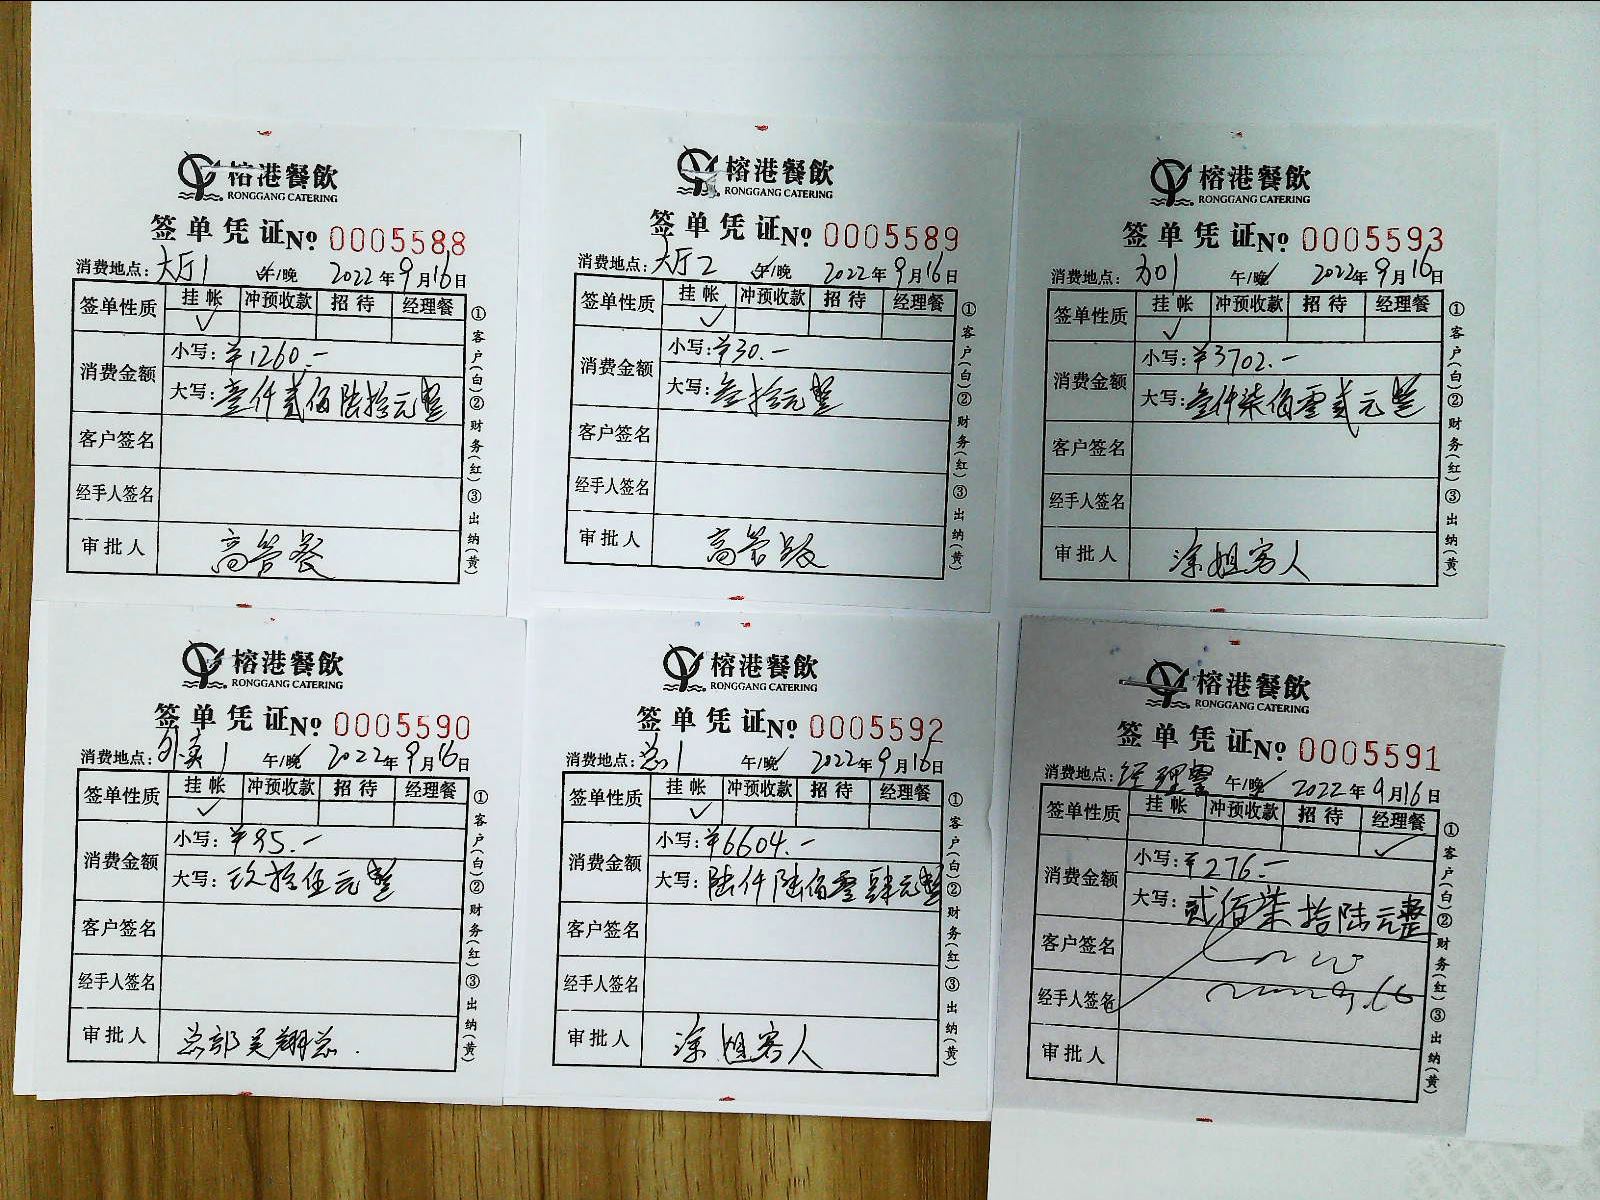 榕港餐飲
RONGGANG CATERING
签单凭证 No 0005588
消费地点：大厅1 午/晚 2022年9月16日
签单性质 挂帐 冲预收款 招待 经理餐
✓
消费金额 小写：¥1260.-
大写：壹仟贰佰陆拾元整
客户签名
经手人签名
审批人 高管餐
①客户(白)②财务(红)③出纳(黄)
榕港餐飲
RONGGANG CATERING
签单凭证 No 0005589
消费地点：大厅2 午/晚 2022年9月16日
签单性质 挂帐 冲预收款 招待 经理餐
✓
消费金额 小写：¥30.-
大写：叁拾元整
客户签名
经手人签名
审批人 高管
①客户(白)②财务(红)③出纳(黄)
榕港餐飲
RONGGANG CATERING
签单凭证 No 0005593
消费地点： 午/晚 2022年9月16日
签单性质 挂帐 冲预收款 招待 经理餐
✓
消费金额 小写：¥3702.-
大写：叁仟柒佰零贰元整
客户签名
经手人签名
审批人 涂姐客人
①客户(白)②财务(红)③出纳(黄)
榕港餐飲
RONGGANG CATERING
签单凭证 No 0005590
消费地点：外卖1 午/晚 2022年9月16日
签单性质 挂帐 冲预收款 招待 经理餐
✓
消费金额 小写：¥95.-
大写：玖拾伍元整
客户签名
经手人签名
审批人 总部吴翔总.
①客户(白)②财务(红)③出纳(黄)
榕港餐飲
RONGGANG CATERING
签单凭证 No 0005592
消费地点：总1 午/晚 2022年9月16日
签单性质 挂帐 冲预收款 招待 经理餐
✓
消费金额 小写：¥6604.-
大写：陆仟陆佰零肆元整
客户签名
经手人签名
审批人 涂姐客人
①客户(白)②财务(红)③出纳(黄)
榕港餐飲
RONGGANG CATERING
签单凭证 No 0005591
消费地点：经理餐 午/晚 2022年9月16日
签单性质 挂帐 冲预收款 招待 经理餐
✓
消费金额 小写：¥276.-
大写：贰佰柒拾陆元整
客户签名
经手人签名
审批人
①客户(白)②财务(红)③出纳(黄)